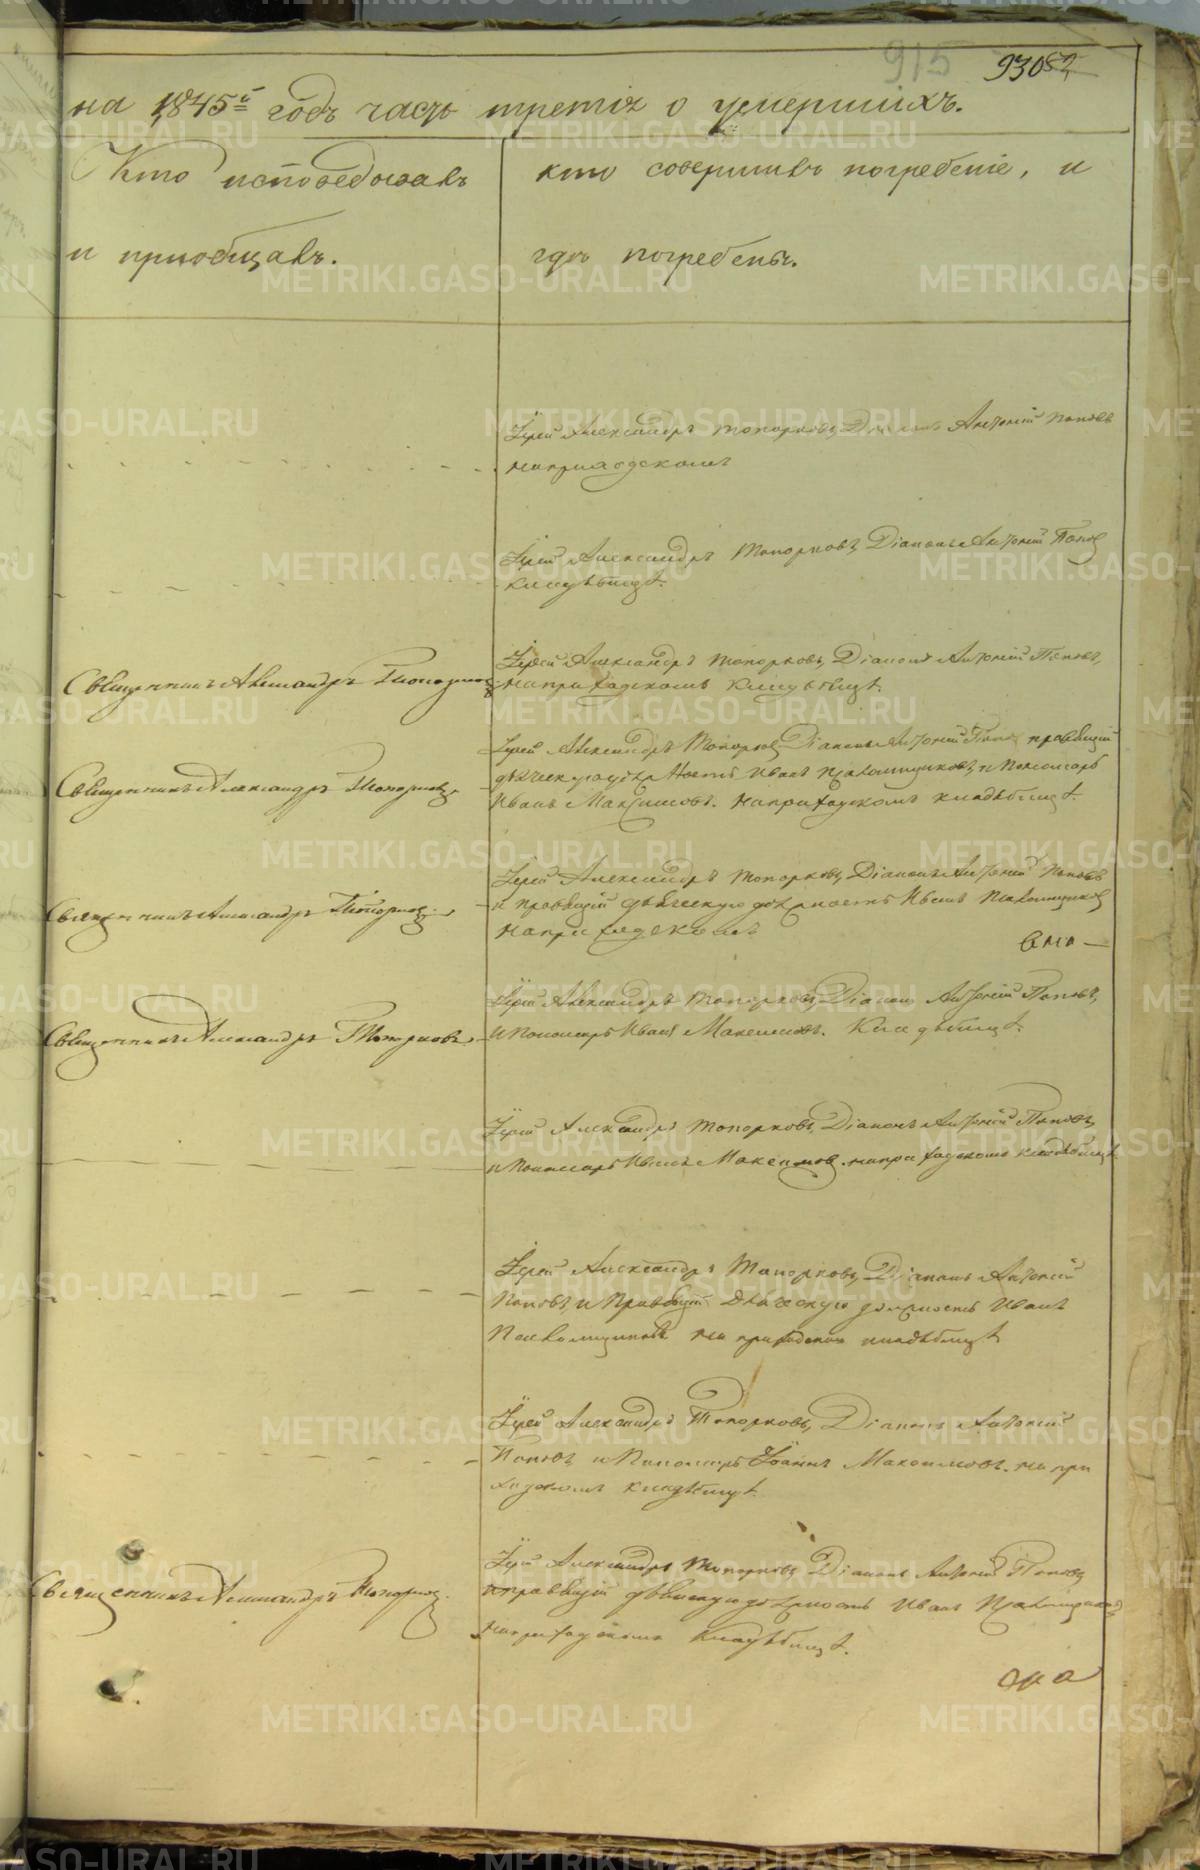 915 930
на 1845й годъ часть третія о умершихъ.
Кто исповедовалъ
и приобщалъ.
кто совершилъ погребеніе, и
гдѣ погребены.
Іерей Александръ Топорковъ, Діаконъ Антоній Поповъ
на приходскомъ
Іерей Александръ Топорковъ, Діаконъ Антоній Поповъ
кладбищѣ.
Священникъ Александръ Топорковъ
Іерей Александръ Топорковъ, Діаконъ Антоній Поповъ,
на приходскомъ кладбищѣ.
Священникъ Александръ Топорковъ
Іерей Александръ Топорковъ Діаконъ Антоній Поповъ правящій
должность Иванъ и Пономарь
Иванъ Максимовъ. на приходскомъ кладбищѣ.
Священникъ Александръ Топорковъ
Іерей Александръ Топорковъ, Діаконъ Антоній Поповъ
и правящій должность Иванъ
на приходскомъ
Священникъ Александръ Топорковъ
Іерей Александръ Топорковъ, Діаконъ Антоній Поповъ,
и Пономарь Иванъ Максимовъ. Кладбищѣ.
Іерей Александръ Топорковъ, Діаконъ Антоній Поповъ,
и Пономарь Иванъ Максимов. на приходскомъ кладбищѣ
Іерей Александръ Топорковъ, Діаконъ Антоній
Поповъ, и Правящій должность Иванъ
на приходском кладбищѣ
Іерей Александръ Топорковъ, Діаконъ Антоній
Поповъ и Пономарь Іоаннъ Максимовъ. на при
ходскомъ кладбищѣ
Священникъ Александръ Топорковъ
Іерей Александръ Топорковъ, Діаконъ Антоній Поповъ
и правящій должность Иванъ
на приходскомъ Кладбищѣ.
METRIKI.GASO-URAL.RU